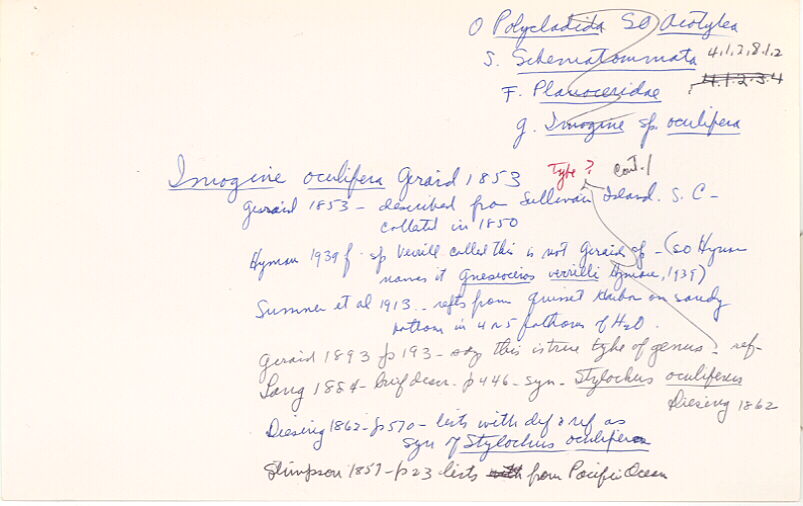 O Polycladida SO Acotylea
S. Schematommata 4.1.2.8.1.2
F. Planoceridae 4.1.2.3.4
g. Imogine sp oculifera
Imogine oculifera Gerard 1853 Type ? Cont. 1
Gerard 1853 - described from Sullivan Island. S. C -
collected in 1850
Hyman 1939 f. sp Verrill called this is not Gerards sp - (so Hyman
names it Gnesioceros verrilli Hyman, 1939)
Sumner et al 1913 - repts from Quisset Harbor on sandy
bottom in 4 or 5 fathoms of H2O.
Gerard 1893 p 193 - says this is true type of genus - ref -
Lang 1884 - brief descr. p 446 - syn - Stylochus oculiferus
Diesing 1862
Diesing 1862 - p 570 - lists with def & ref as
syn of Stylochus oculiferus
Stimpson 1857 - p 23 lists from Pacific Ocean